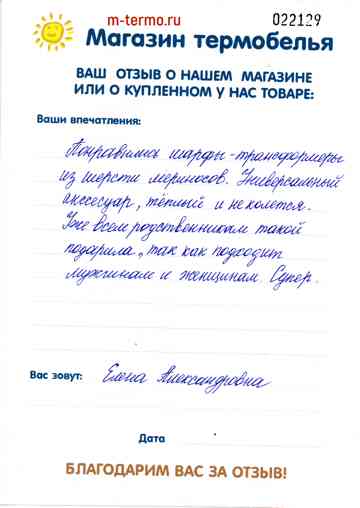 m-termo.ru
022129
Магазин термобелья
ВАШ ОТЗЫВ О НАШЕМ МАГАЗИНЕ
ИЛИ О КУПЛЕННОМ У НАС ТОВАРЕ:
Ваши впечатления:
Понравились шарфы-трансформеры
из шерсти мериносов. Универсальный
аксессуар, тёплый и не колется.
Уже всем родственникам такой
подарила, так как подходит
мужчинам и женщинам. Супер.
Вас зовут: Елена Александровна
Дата
БЛАГОДАРИМ ВАС ЗА ОТЗЫВ!